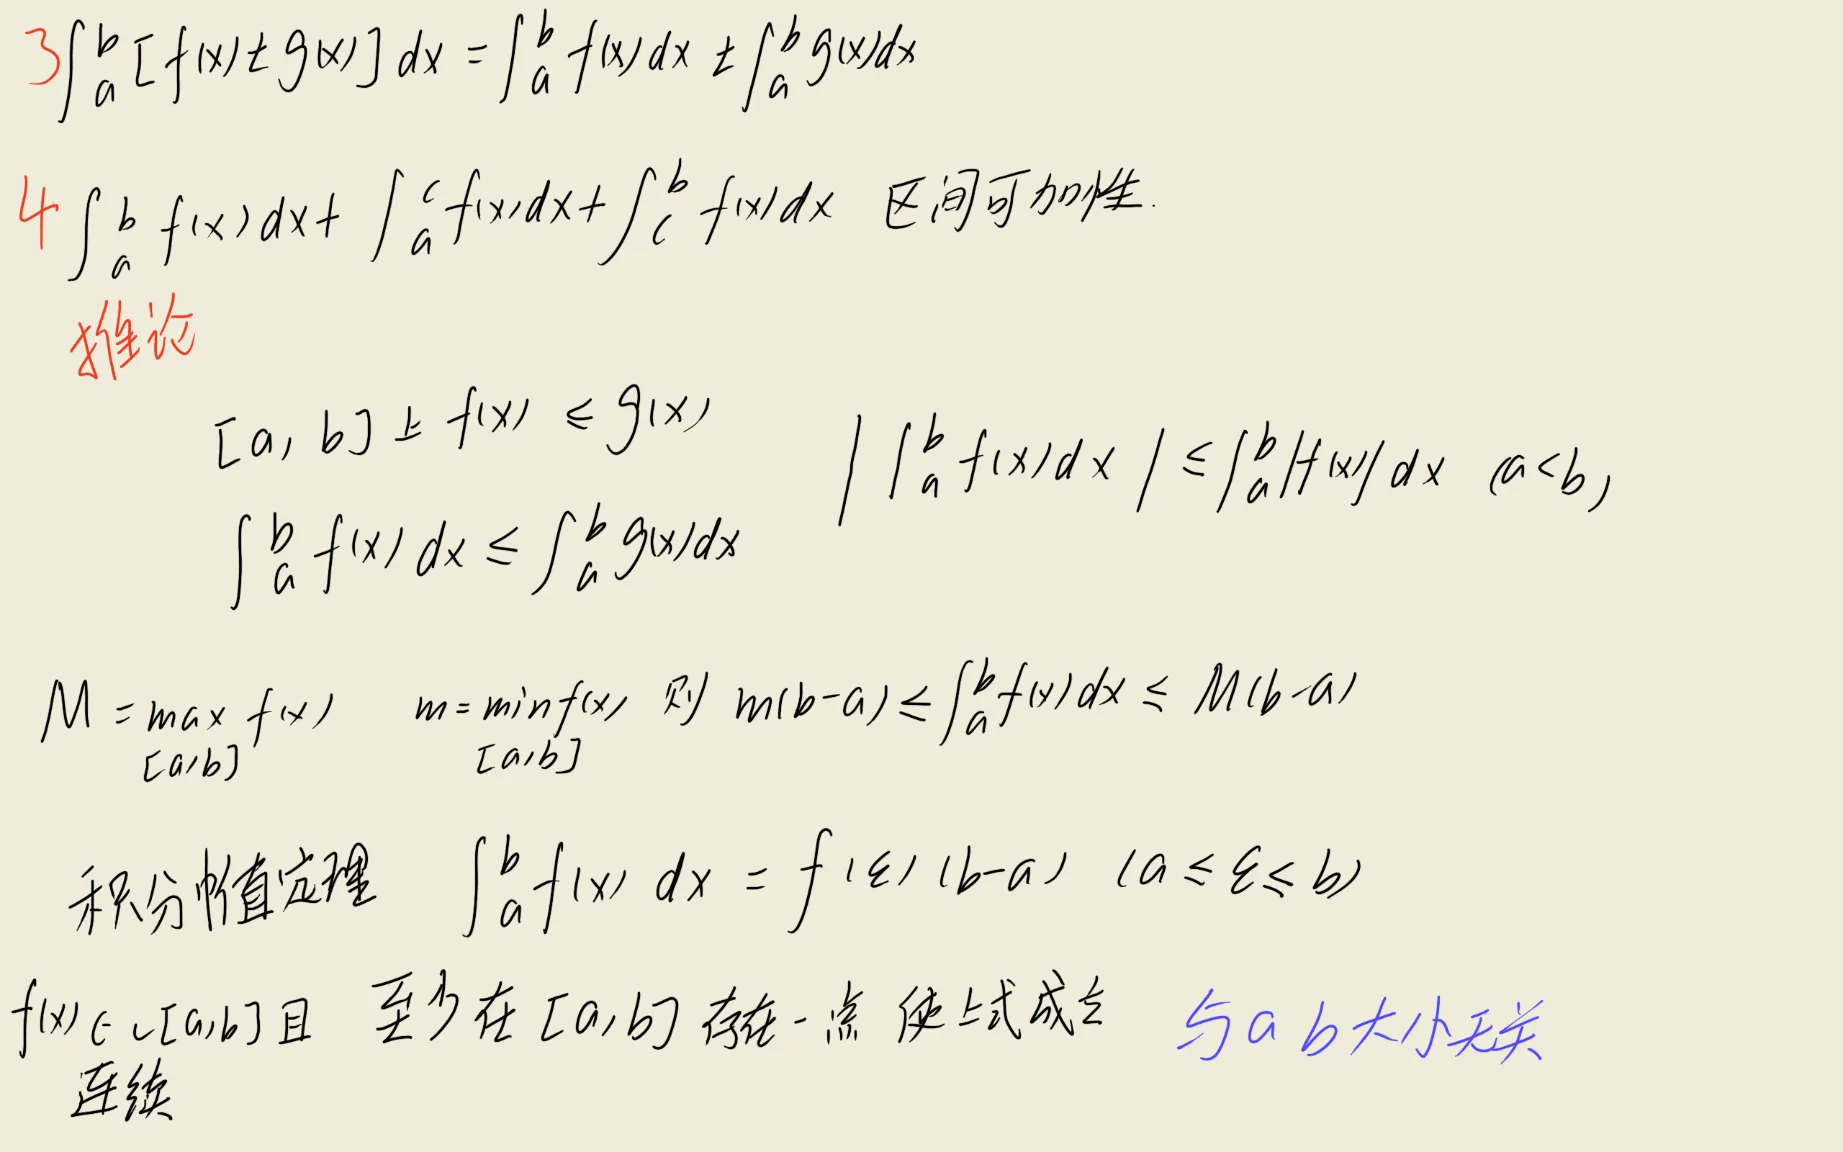 3 ∫_a^b [f(x) ± g(x)] dx = ∫_a^b f(x) dx ± ∫_a^b g(x) dx
4 ∫_a^b f(x) dx + ∫_a^c f(x) dx + ∫_c^b f(x) dx 区间可加性.
推论
[a, b] 上 f(x) ≤ g(x)
∫_a^b f(x) dx ≤ ∫_a^b g(x) dx
|∫_a^b f(x) dx| ≤ ∫_a^b |f(x)| dx (a<b)
M = max_[a,b] f(x) m = min_[a,b] f(x) 则 m(b-a) ≤ ∫_a^b f(x) dx ≤ M(b-a)
积分中值定理 ∫_a^b f(x) dx = f(ξ) (b-a) (a ≤ ξ ≤ b)
f(x) ∈ C[a,b] 且 至少在 [a,b] 存在一点 使上式成立 与 a b 大小无关
连续